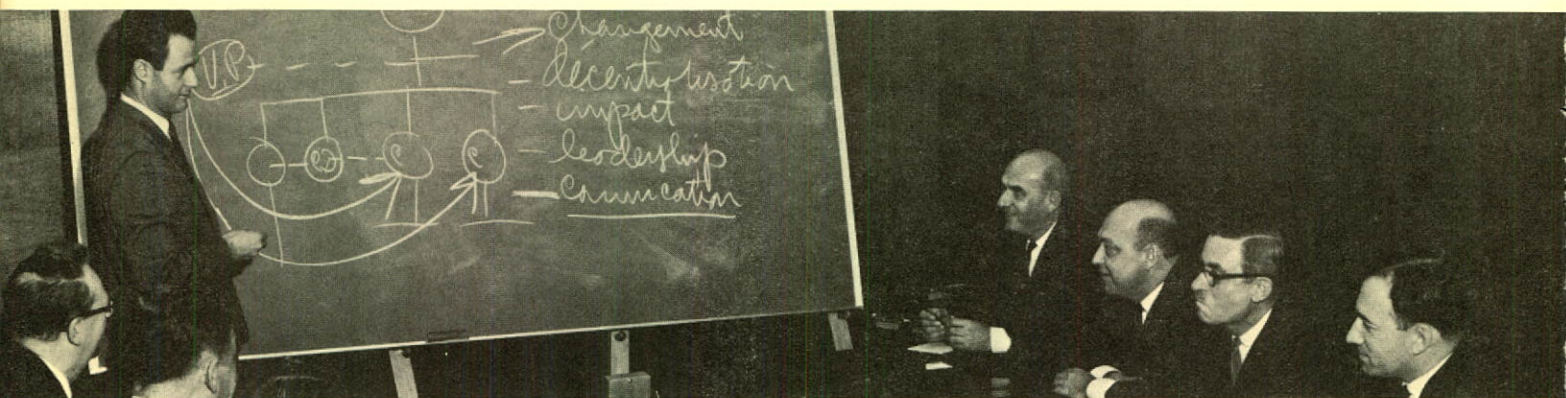 changement
V.P.
décentralisation
impact
leadership
communication
C
C